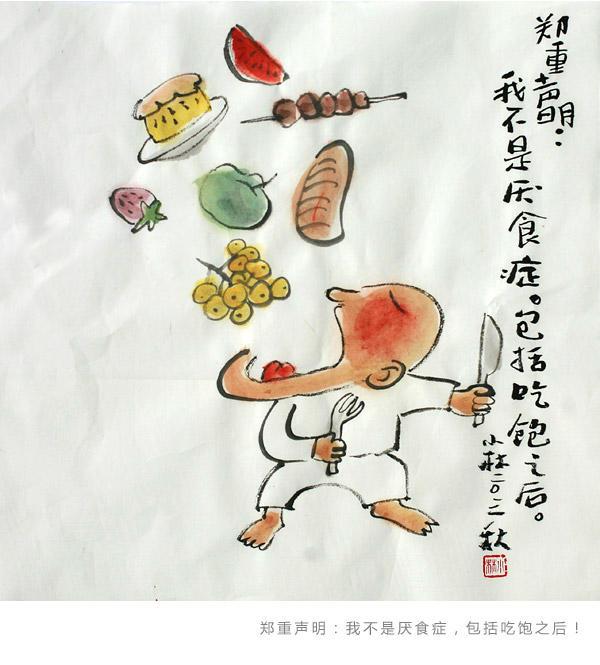 郑重声明：
我不是厌食症。包括吃饱之后。
小林二〇一二秋
郑重声明：我不是厌食症，包括吃饱之后！